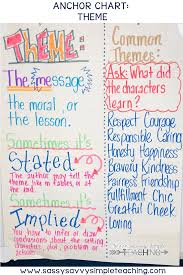 ANCHOR CHART:
THEME
THEME:
The message
the moral, or
the lesson.
Sometimes it's
Stated
The author may tell the
theme, like in fables, or at
the end.
Sometimes it's
Implied
You have to infer or draw
conclusions about the setting,
characters, plot, dialogue,
and actions.
Common
Themes:
Ask: What did
the characters
learn?
Respect Courage
Responsible Caring
Honesty Happiness
Bravery Kindness
Fairness Friendship
Fulfillment Civic
Grateful Cheerful
Loving
TEACHING
www.sassysavvysimpleteaching.com